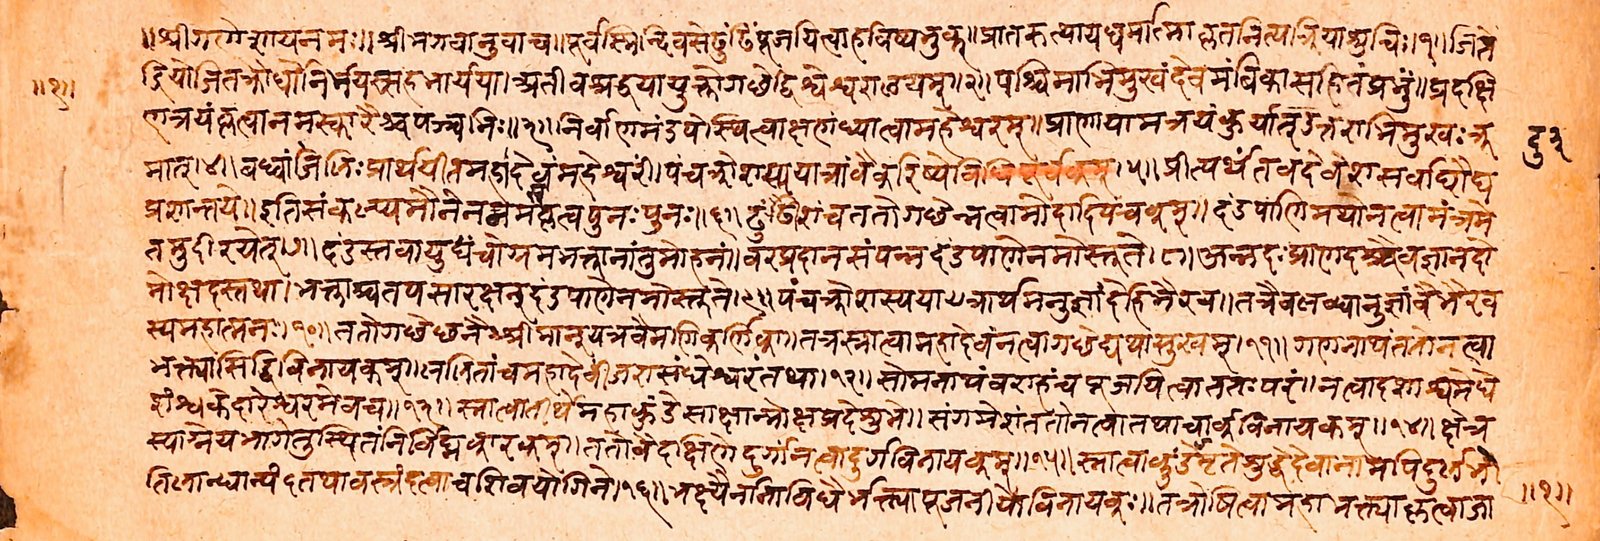 ॥श्रीगणेशायनमः॥श्रीभगवानुवाच॥पूर्वस्मिन्दिवसेढुंढिंपूजयित्वाहविष्यभुक्॥प्रातरुत्थायधर्मात्माकृतनित्यक्रियाशुचिः॥१॥जिते
द्रियोजितक्रोधोनिर्भयस्सहभार्यया॥अतीवश्रद्धयायुक्तोगछेद्विश्वेश्वरालयम्॥२॥पश्चिमाभिमुखंदेवमंबिकासहितंप्रभुं॥प्रदक्षि
णत्रयंकृत्वानमस्कारैश्चपञ्चभिः॥३॥निर्वाणमंडपेस्थित्वाक्षणंध्यात्वामहेश्वरम्॥प्राणायामत्रयंकुर्यात्उत्तराभिमुखःक्र
मात्॥४॥बध्वांजलिःप्रार्थयीतमहादेवंमहेश्वरं॥पंचक्रोशस्ययात्रांवैकरिष्येविधिपूर्वकम्॥५॥प्रीत्यर्थंतवदेवेशसर्वाघौघ
प्रशान्तये॥इतिसंकल्प्यमौनेननत्वापुनःपुनः॥६॥ढुंढिराजंततोगछेन्नत्वामोदादिपंचकम्॥दंडपाणिमथोनत्वामंत्रमे
तमुदीरयेत्॥७॥दंडस्तवायुधंचोग्रमभक्तानांतुमोहनं॥वरप्रदानसंपन्नदंडपाणेनमोस्तुते॥८॥अन्नदःप्राणदश्चैवज्ञानदो
मोक्षदस्तथा॥भक्ताश्चतपसारक्षन्दंडपाणेनमोस्तुते॥९॥पंचक्रोशस्ययात्रार्थमनुज्ञांदेहिभैरव॥तत्रैवलब्धानुज्ञांवैभैरव
स्यमहात्मनः॥१०॥ततोगछेछनैश्श्रीमान्यत्रवैमणिकर्णिका॥तत्रस्नात्वामहादेवंनत्वागछेद्यथासुखम्॥११॥गणनाथंततोनत्वा
भक्त्यासिद्धिविनायकम्॥ललितांचमहादेवींजरासंधेश्वरंतथा॥१२॥सोमनाथंवराहंचपूजयित्वाततःपरं॥नत्वादशाश्वमेधे
शंश्चकेदारेश्वरमेवच॥१३॥स्नात्वातीर्थेमहाकुंडेसाक्षान्मोक्षप्रदेशुभे॥संगमेशंततोनत्वातथाचार्कविनायकम्॥१४॥क्षेत्र
स्याग्नेयभागेतुस्थितंनिर्विघ्नकारकम्॥ततोवैदक्षिणेदुर्गांनत्वादुर्गविनायकम्॥१५॥स्नात्वाकुंडेमृतेशुद्धेदेवानामपिदुर्लभे
तिलान्धान्यंदतथावस्त्रंदत्वाचशिवयोगिने॥१६॥भक्ष्यैर्नानाविधैर्भक्त्यापूजनीयोविनायकः॥तत्रोषित्वामहाभक्त्याकृत्वाजा
॥१॥
॥१॥